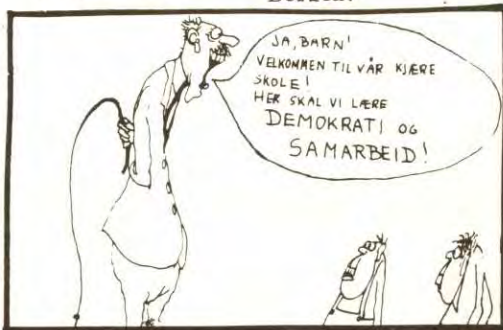 JA, BARN!
VELKOMMEN TIL VÅR KJÆRE
SKOLE!
HER SKAL VI LÆRE
DEMOKRATI OG
SAMARBEID!